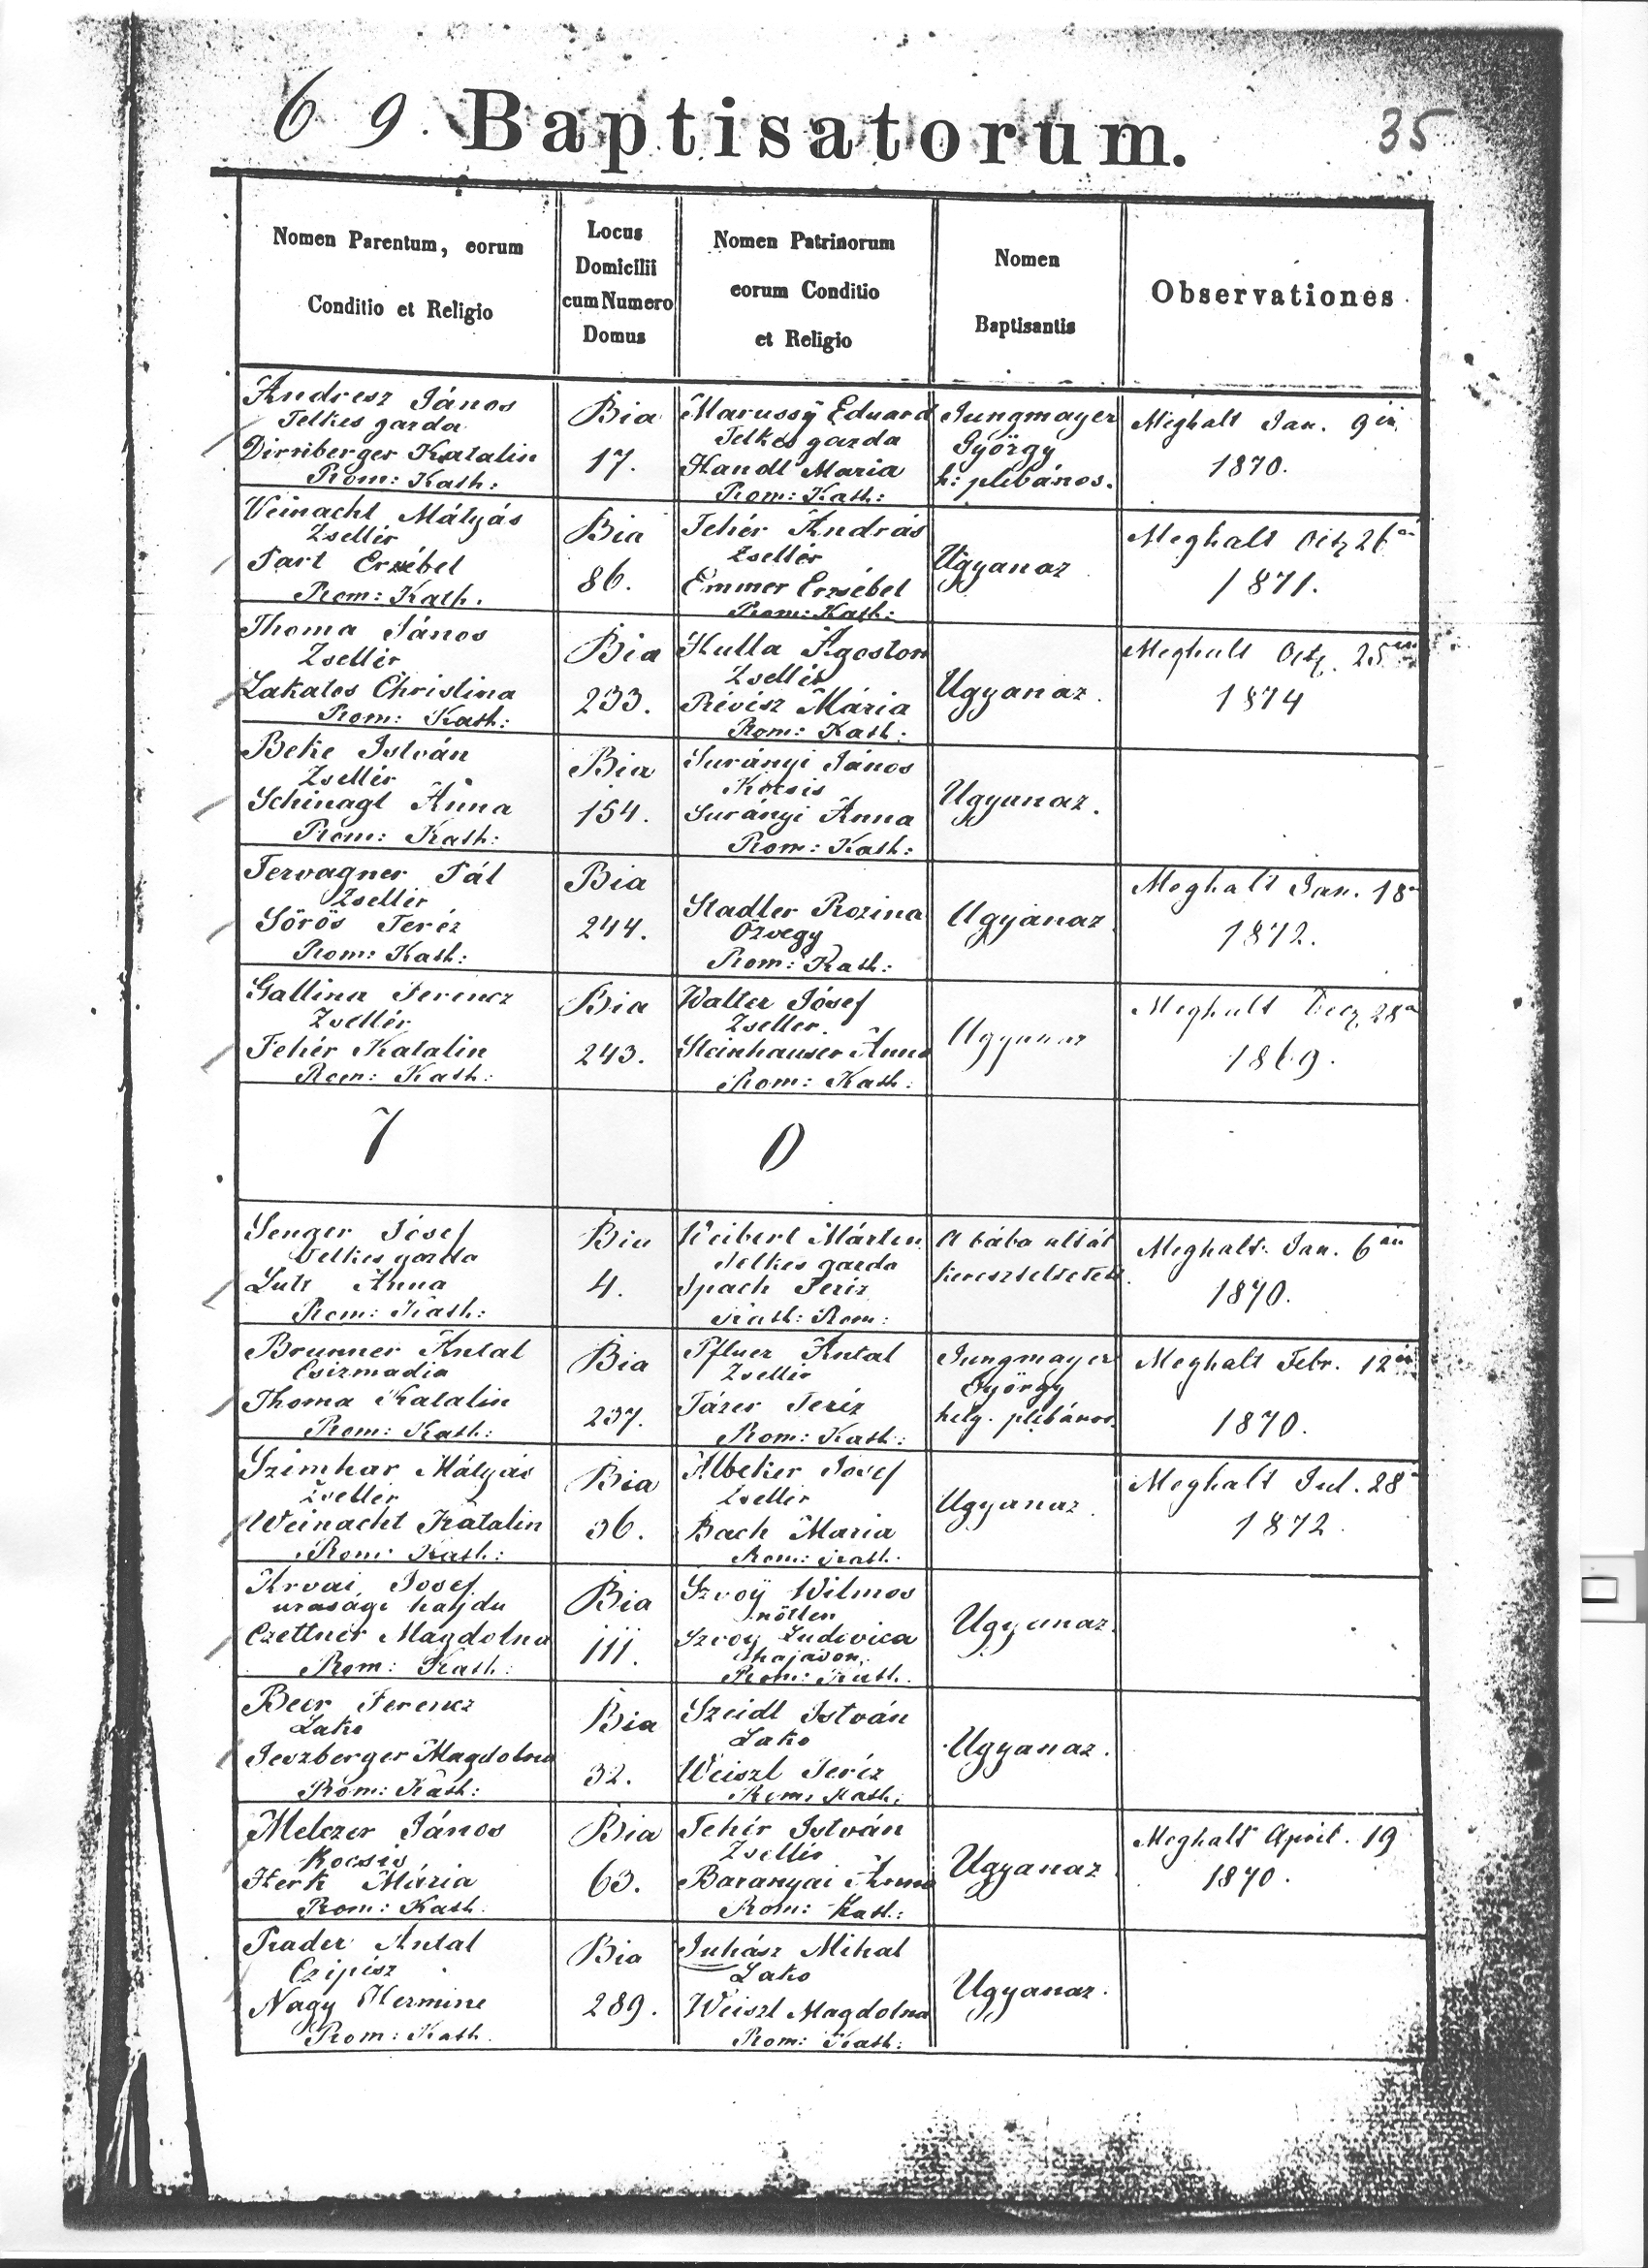 6 9. Baptisatorum. 35
Nomen Parentum, eorum
Conditio et Religio
Locus
Domicilii
cum Numero
Domus
Nomen Patrinorum
eorum Conditio
et Religio
Nomen
Baptisantis
Observationes.
Andresz János
Telkes gazda
Dirnberger Katalin
Rom: Kath:
Bia
17.
Marussÿ Eduard
Telkes gazda
Handl Maria
Rom: Kath:
Jungmayer
György
h: plébános.
Meghalt Jan. 9én
1870.
Veinacht Mátyás
Zsellér
Part Erzsébet
Rom: Kath.
Bia
86.
Fehér András
Zsellér
Emmer Erzsébet
Rom: Kath:
Ugyanaz
Meghalt 26
1871.
Thoma János
Zsellér
Lakatos Christina
Rom: Kath:
Bia
233.
Hulla Ágoston
Zsellér
Révész Mária
Rom: Kath:
Ugyanaz.
Meghalt 25
1874
Beke István
Zsellér
Schinagl Anna
Rom: Kath:
Bia
154.
Surányi János
Kocsis
Surányi Anna
Rom: Kath:
Ugyanaz.
Tervagner Pál
Zsellér
Sörös Teréz
Rom: Kath:
Bia
244.
Stadler Rozina
Özvegy
Rom: Kath:
Ugyanaz
Meghalt Jan. 18
1872.
Gallina Ferencz
Zsellér
Fehér Katalin
Rom: Kath:
Bia
243.
Walter Jósef
Zseller.
Steinhauser Anna
Rom: Kath:
Ugyanaz
Meghalt Decz. 28
1869.
7 0
Senger Jósef
Telkes gazda
Lutz Anna
Rom: Kath:
Bia
4.
Weibert Márton
Telkes gazda
Spach Teréz
Kath: Rom:
A bába által
kereszteltetett.
Meghalt. Jan. 6án
1870.
Brunner Antal
Csizmadia
Thoma Katalin
Rom: Kath:
Bia
237.
Antal
Zsellér
Teréz
Rom: Kath:
Jungmayer
György
hely. plébános.
Meghalt Febr. 12
1870.
Szimhar Mátyás
Zsellér
Weinacht Katalin
Rom: Kath:
Bia
36.
Albeker Josef
Zsellér
Bach Maria
Rom: Kath.
Ugyanaz.
Meghalt Jul. 28
1872.
Arvai Josef
urasági hajdu
Czettner Magdolna
Rom: Kath:
Bia
111.
Szvoÿ Wilmos
nőtlen
Szvoy Ludovica
hajadon.
Rom: Kath.
Ugyanaz.
Beer Ferencz
Lako
Magdolna
Rom: Kath:
Bia
32.
Szeidl István
Lako
Weiszl Teréz
Rom: Kath:
Ugyanaz.
Melczer János
Kocsis
Herk Mária
Rom: Kath.
Bia
63.
Fehér István
Zsellér
Baranyai Anna
Rom: Kath.:
Ugyanaz
Meghalt April. 19
1870.
Prader Antal
Czipész
Nagy Hermine
Rom: Kath.
Bia
289.
Juhász Mihal
Lako
Weiszl Magdolna
Rom: Kath:
Ugyanaz.